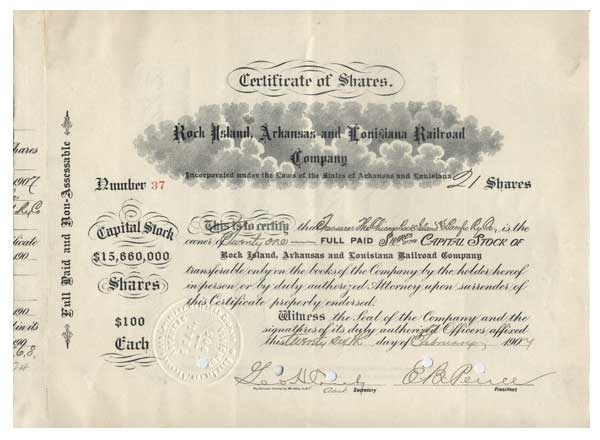 Certificate of Shares.
Rock Island, Arkansas and Louisiana Railroad
Company
Incorporated under the Laws of the States of Arkansas and Louisiana
Number 37
21 Shares
Full Paid and Non-Assessable
Capital Stock
$15,660,000
Shares
$100
Each
This is to certify that Treasurer The Chicago Rock Island & Pacific Ry Co, is the
owner of Twenty one FULL PAID SHARES OF THE CAPITAL STOCK OF
Rock Island, Arkansas and Louisiana Railroad Company
transferable only on the books of the Company by the holder hereof
in person or by duly authorized Attorney upon surrender of
this Certificate properly endorsed.
Witness the Seal of the Company and the
signatures of its duly authorized Officers affixed
this twenty sixth day of February 1907
Asst Secretary
President
hares
1907
Ry Co
ificate
190
190